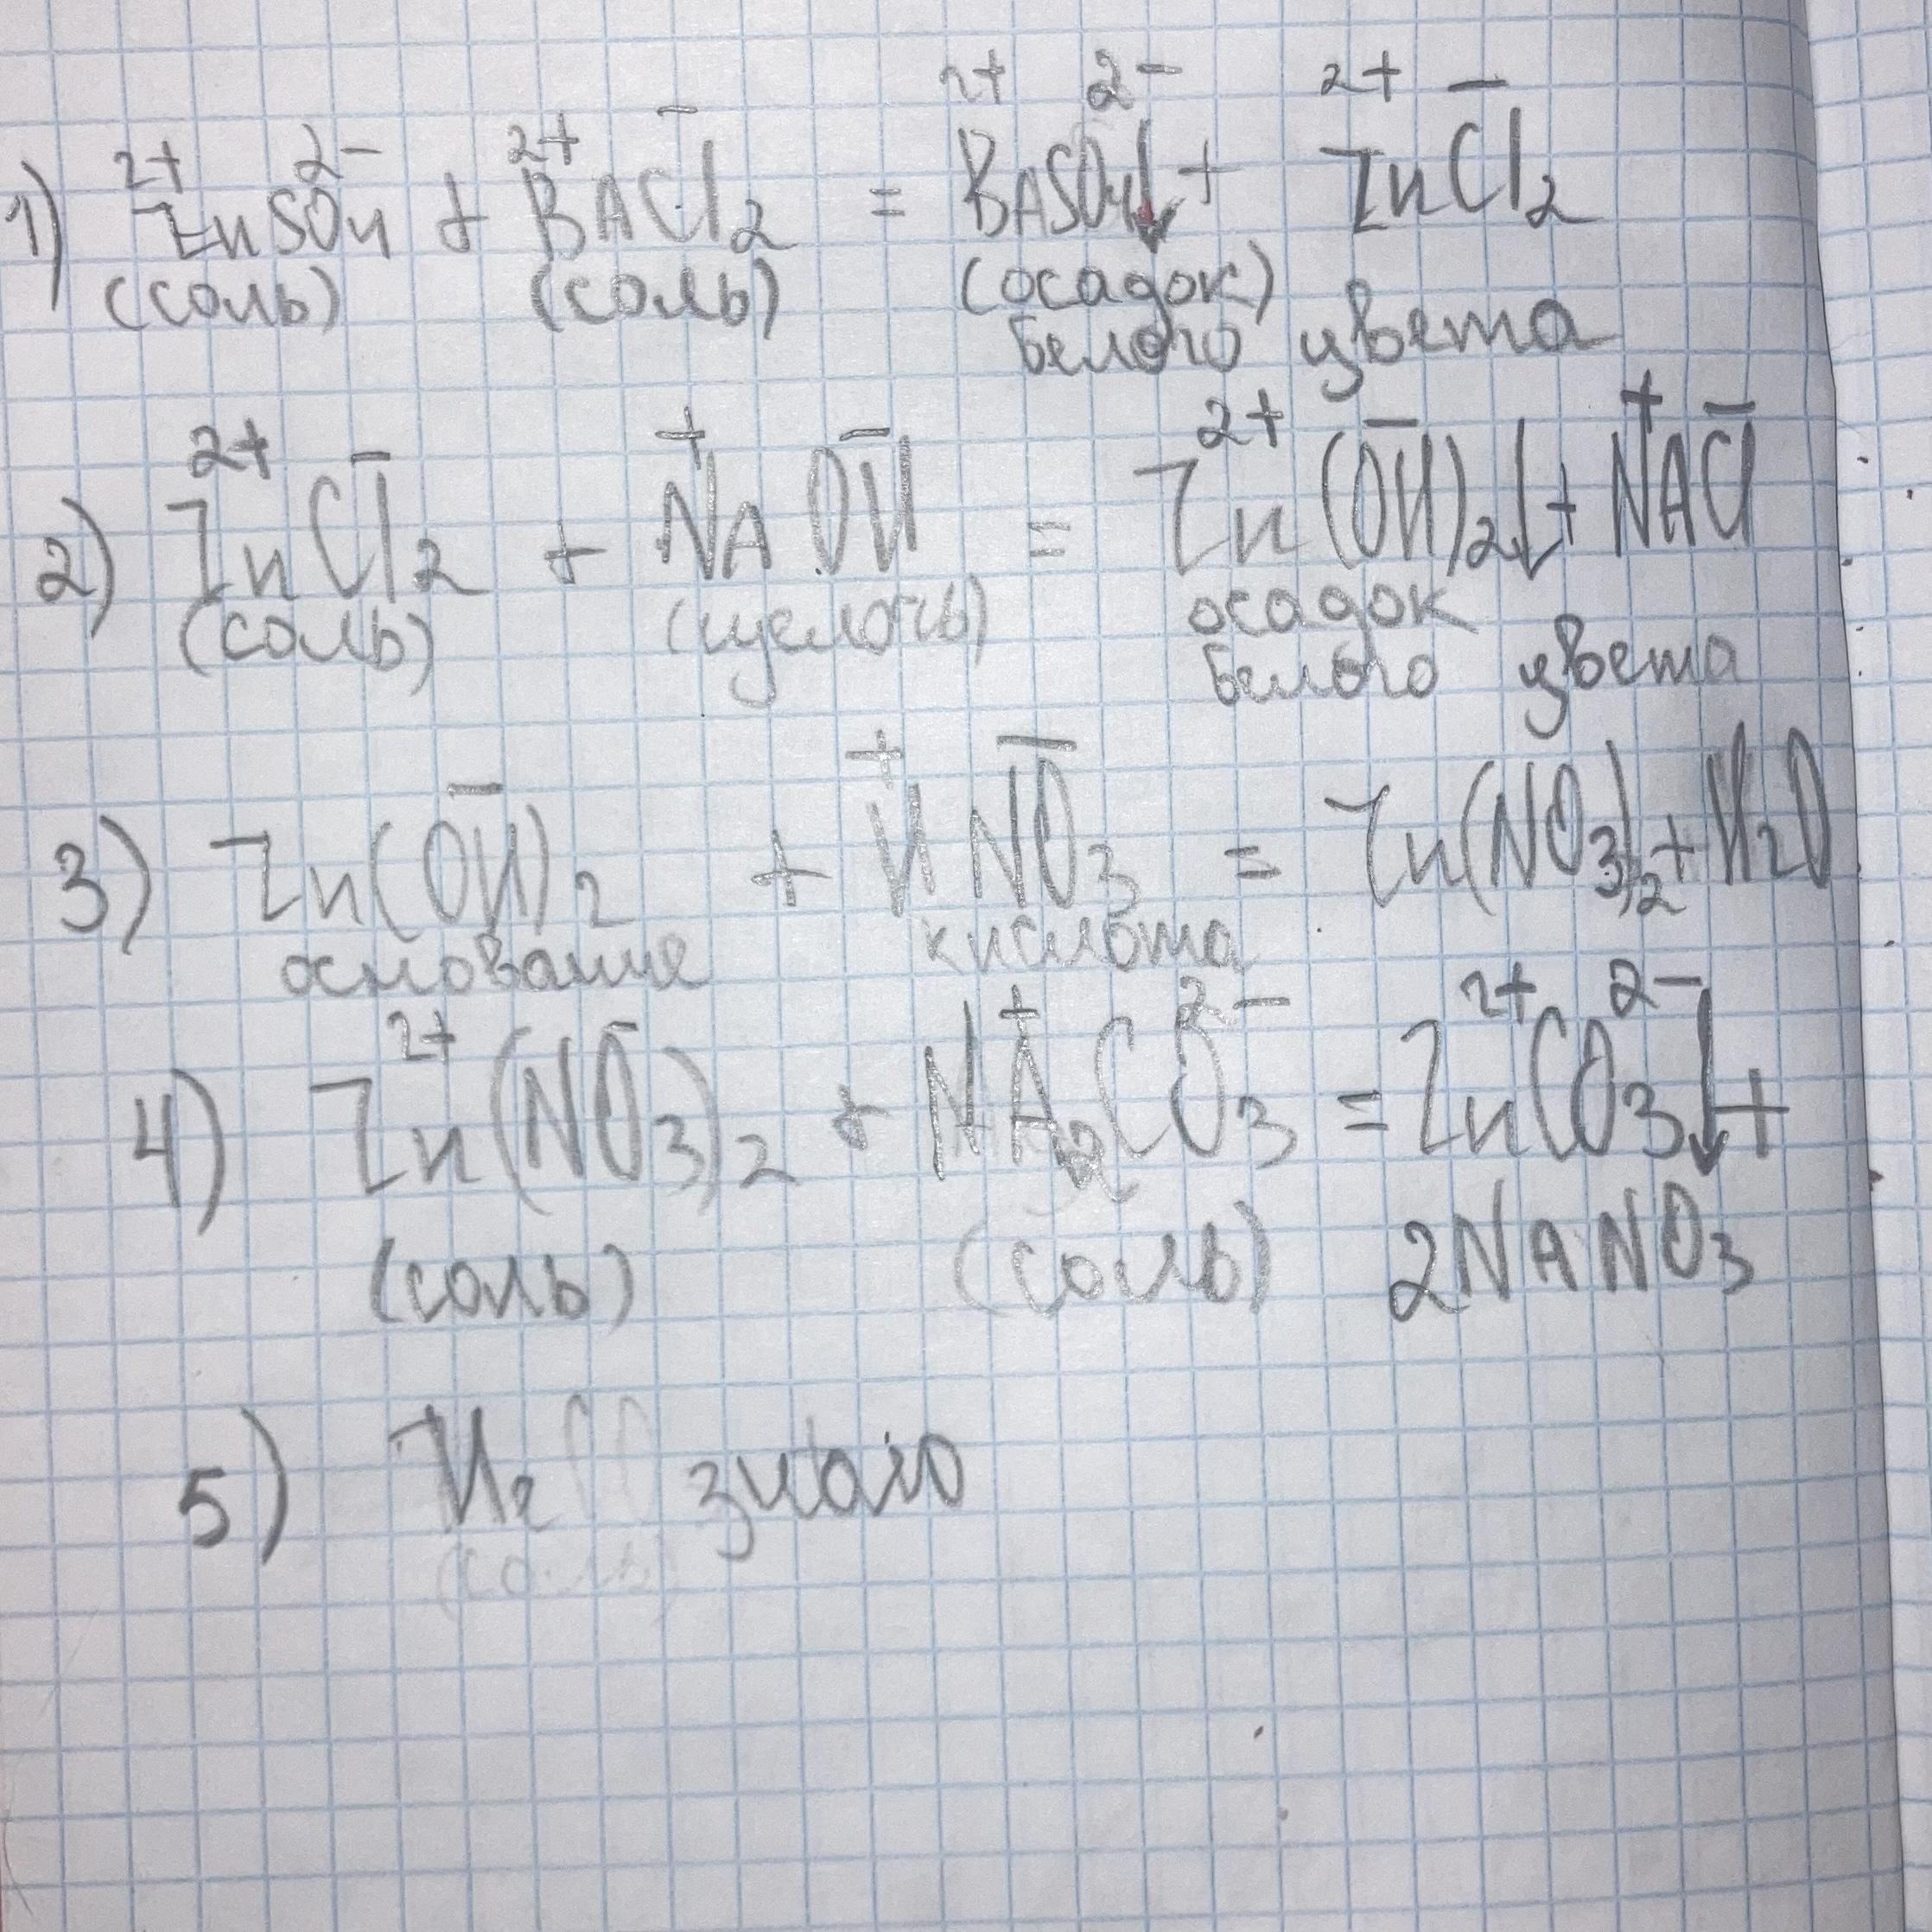 1) Zn²⁺SO₄²⁻ + Ba²⁺Cl₂⁻ = Ba²⁺SO₄²⁻↓ + Zn²⁺Cl₂⁻
(соль) (соль) (осадок)
белого цвета
2) Zn²⁺Cl₂⁻ + Na⁺OH⁻ = Zn²⁺(OH)₂⁻↓ + Na⁺Cl⁻
(соль) (щелочь) осадок
белого цвета
3) Zn(OH)₂⁻ + H⁺NO₃⁻ = Zn(NO₃)₂ + H₂O
основание кислота
4) Zn²⁺(NO₃)₂⁻ + Na₂⁺CO₃²⁻ = Zn²⁺CO₃²⁻↓ +
(соль) (соль) 2NaNO₃
5) знаю
(соль)